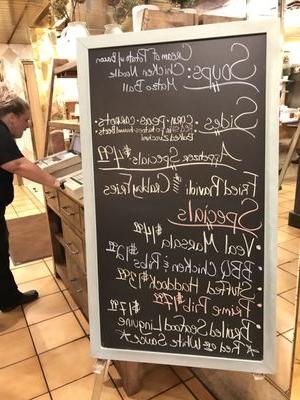 Cream of Potato w/ Bacon
Soups: Chicken Noodle
Matzo Ball
Sides: Corn - Peas - Carrots -
Baked Zucchini
Appetizer Specials $4.99
Fried Ravioli & Crabby Fries
Specials
• Veal Marsala $14.99
• BBQ Chicken & Ribs $12.99
• Stuffed Haddock $13.99
• Prime Rib $17.99
• Broiled Seafood Linguine
* Red or White Sauce * $17.99